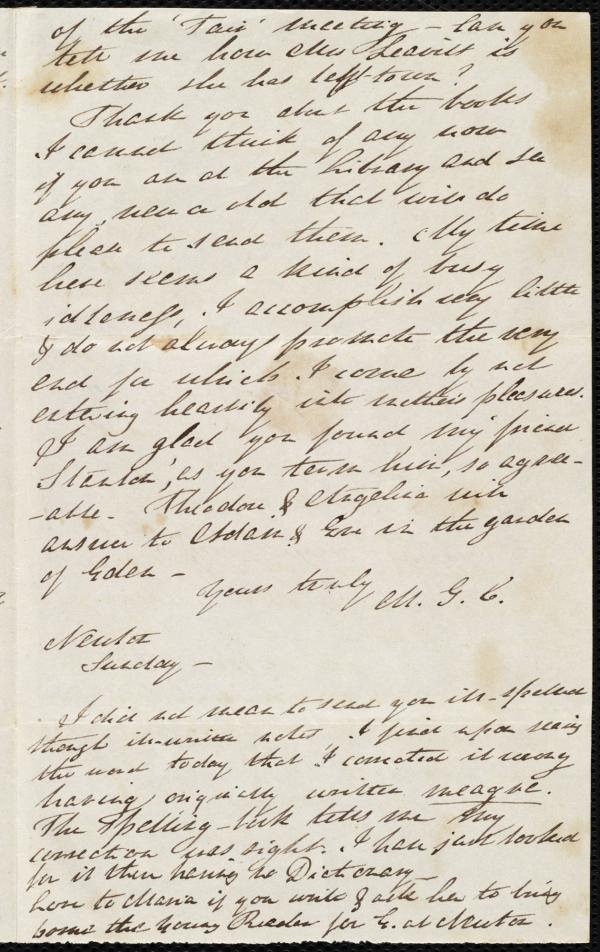 of the 'Fair' meeting - Can you
tell me how Mrs Leavitt is
whether she has left town?
Thank you about the books
I cannot think of any now
if you are at the Library and see
any, new or old that will do
please to send them. My time
here seems a kind of busy
idleness, I accomplish very little
& do not always promote the very
end for which I come by not
entering heartily into mother's pleasures.
I am glad you found 'my friend
Stanton', as you term him, so agree-
-able - Theodore & Angelina will
answer to Adam & Eve in the garden
of Eden -
Yours truly M. G. C.
Newton
Sunday -
I did not mean to send you ill-spelled
though ill-written notes. I find upon seeing
the word today that I corrected it wrong
having originally written meagre.
The Spelling-book tells me my
correction was right. I have just looked
for it there having no Dictionary -
Love to Maria if you write & ask her to bring
home the Young Reader for E. at Newton.